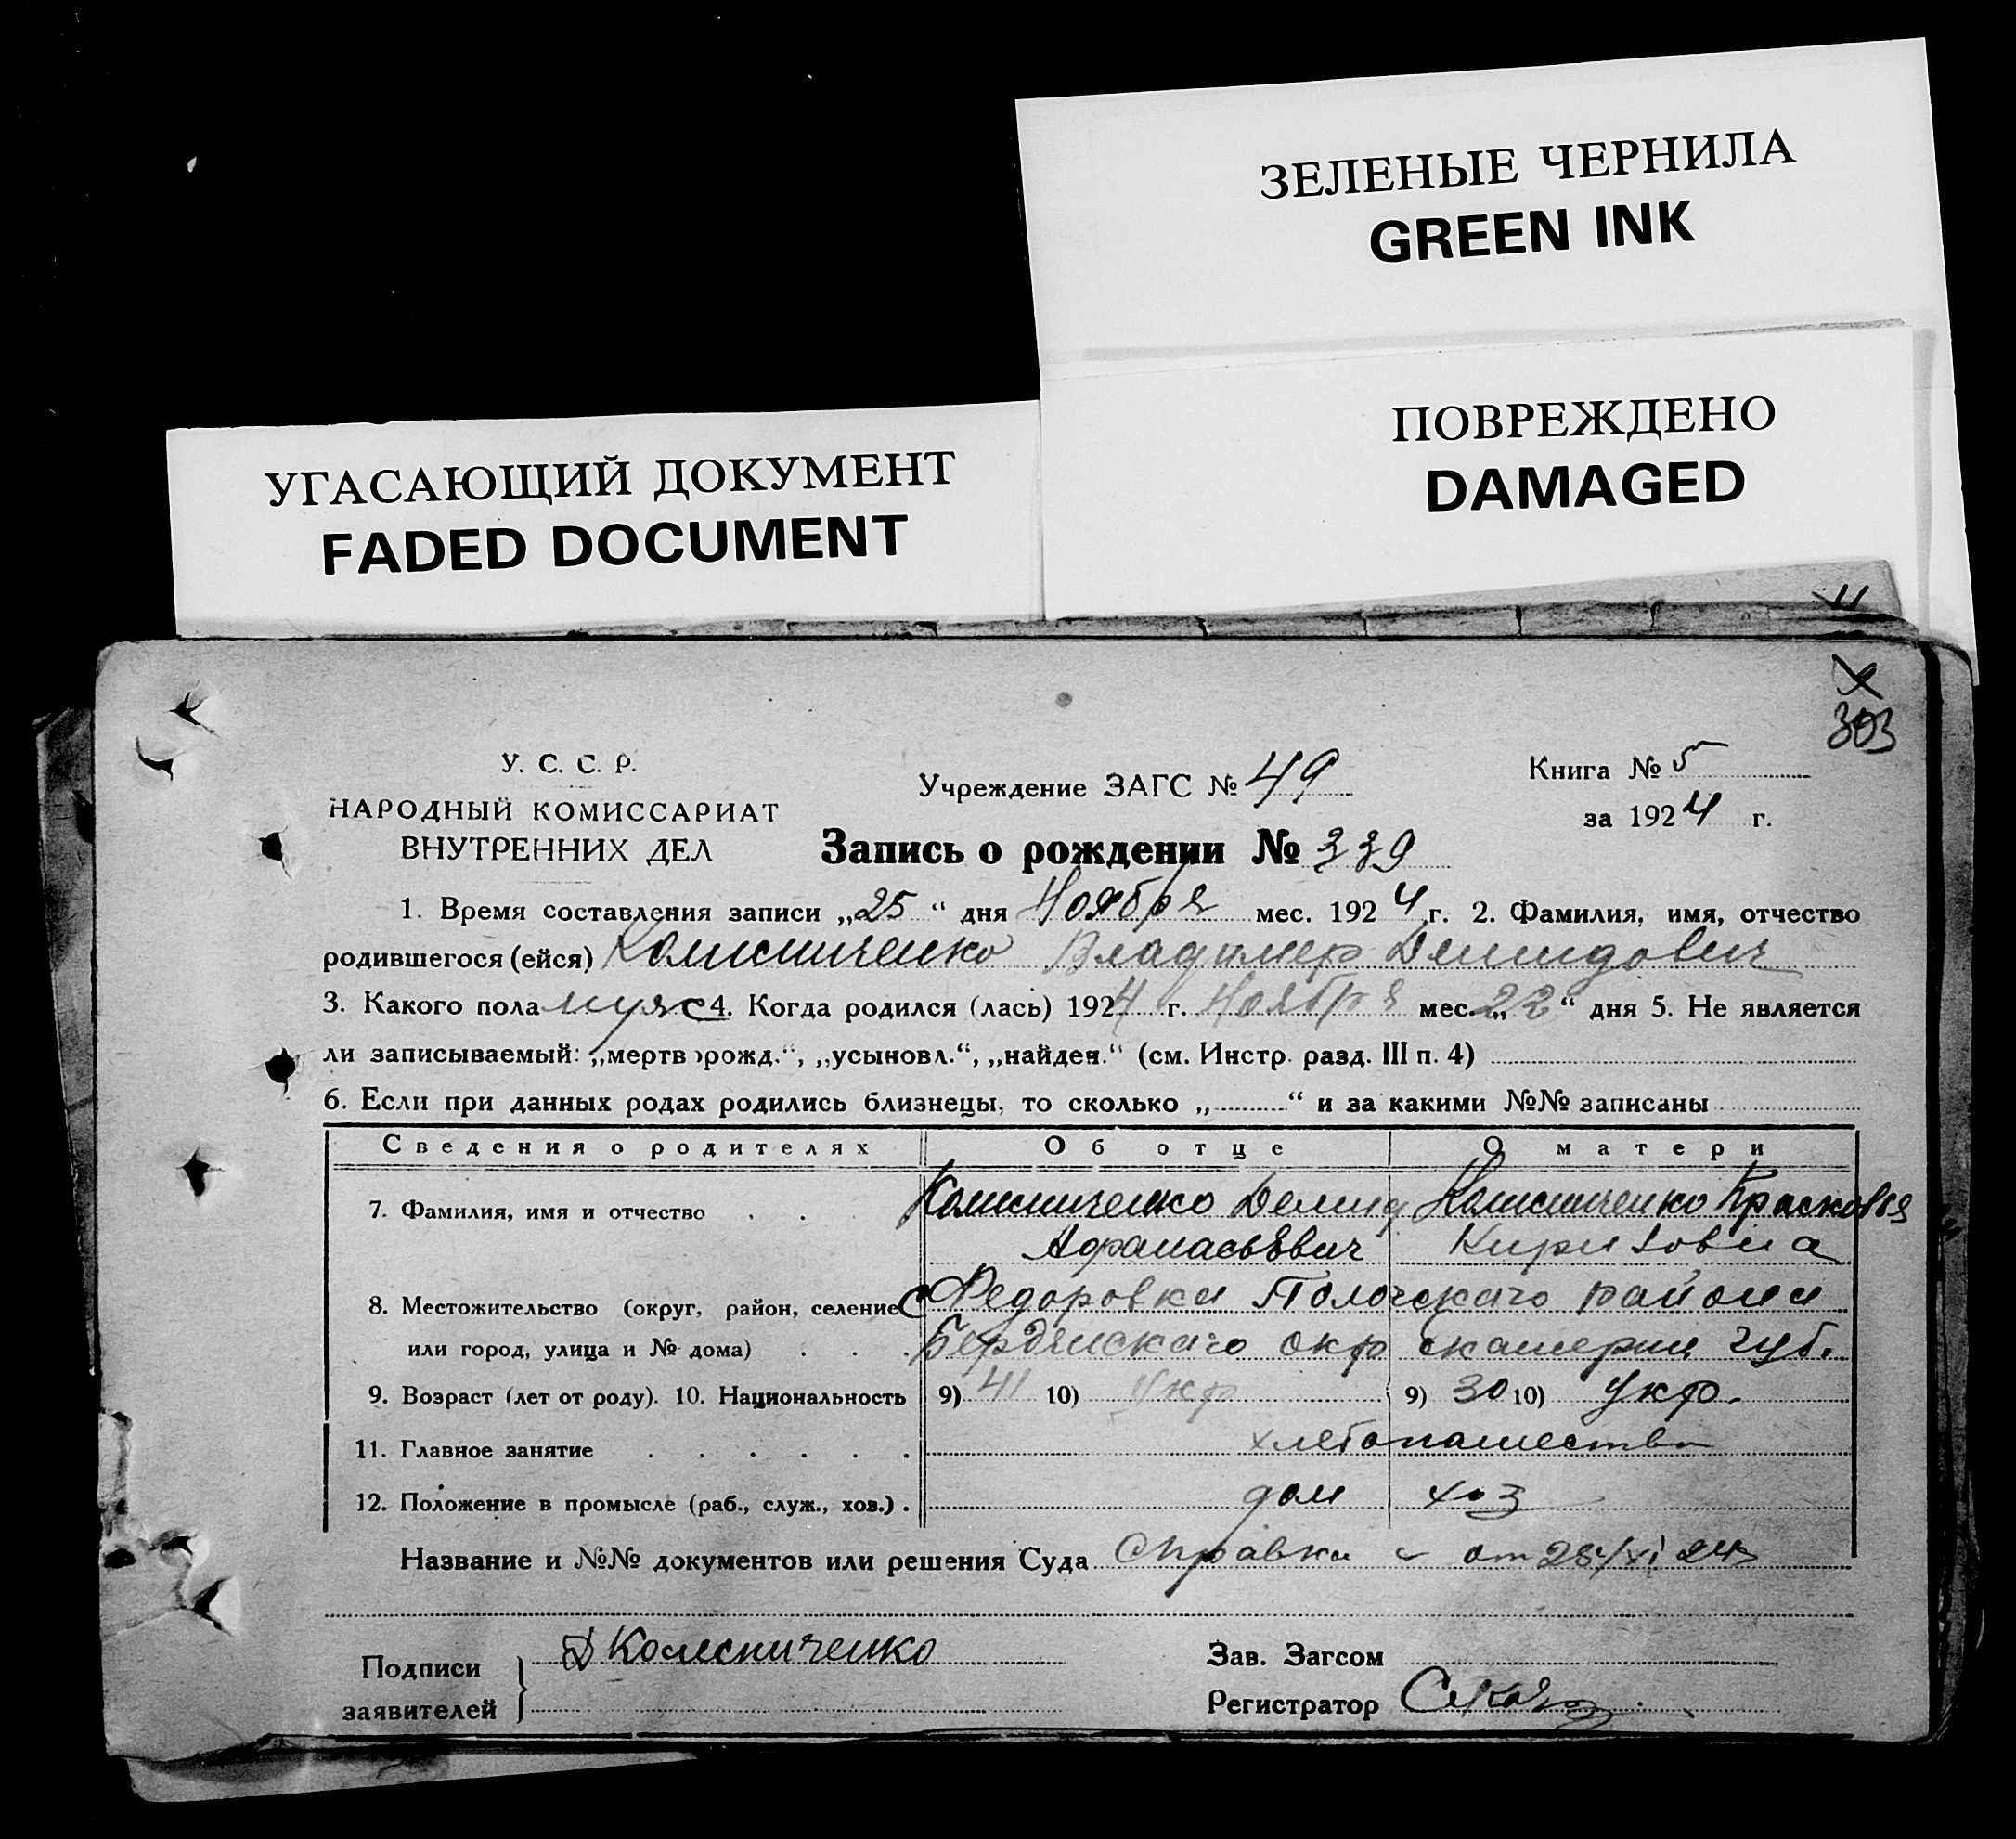 ЗЕЛЕНЫЕ ЧЕРНИЛА
GREEN INK
ПОВРЕЖДЕНО
DAMAGED
УГАСАЮЩИЙ ДОКУМЕНТ
FADED DOCUMENT
303
У. С. С. Р.
НАРОДНЫЙ КОМИССАРИАТ
ВНУТРЕННИХ ДЕЛ
Учреждение ЗАГС № 49
Книга № 5
за 1924 г.
Запись о рождении № 339
1. Время составления записи „25“ дня Ноября мес. 1924 г. 2. Фамилия, имя, отчество
родившегося (ейся) Колисниченко Владимер Демидович
3. Какого пола муж 4. Когда родился (лась) 1924 г. Ноября мес. „22“ дня 5. Не является
ли записываемый: „мертворожд.“, „усыновл.“, „найден.“ (см. Инстр. разд. III п. 4)
6. Если при данных родах родились близнецы, то сколько „ “ и за какими №№ записаны
Сведения о родителях Об отце О матери
7. Фамилия, имя и отчество Колисниченко Демид Колисниченко Прасковья
Афанасьевич Кириловна
8. Местожительство (округ, район, селение С Федоровка Пологскаго района
или город, улица и № дома) Бердянскаго окр Екатерин губ.
9. Возраст (лет от роду). 10. Национальность 9) 41 10) Укр 9) 30 10) Укр.
11. Главное занятие хлебопашество
12. Положение в промысле (раб., служ., хоз.) дом хоз
Название и №№ документов или решения Суда Справка от
Подписи заявителей Д Колесниченко
Зав. Загсом
Регистратор